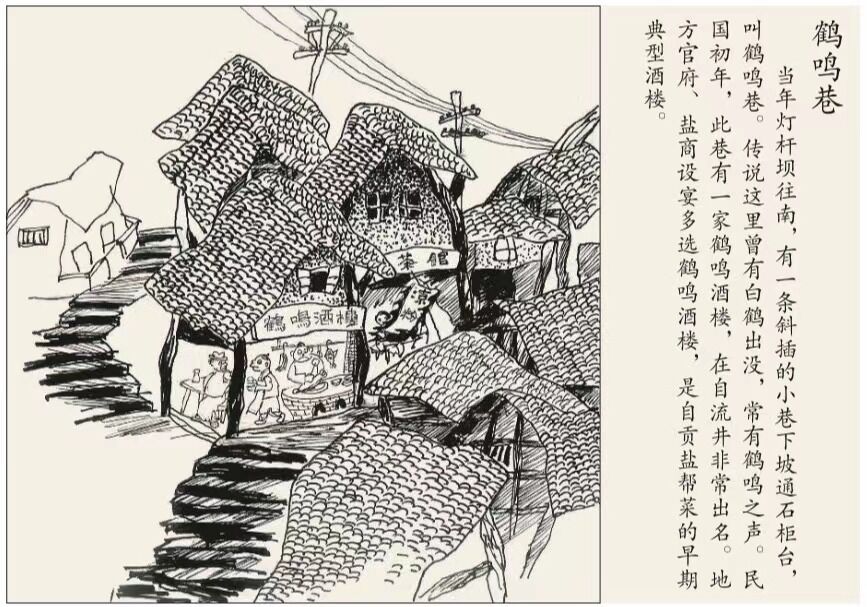 鹤鸣巷
当年灯杆坝往南，有一条斜插的小巷下坡通石柜台，
叫鹤鸣巷。传说这里曾有白鹤出没，常有鹤鸣之声。民
国初年，此巷有一家鹤鸣酒楼，在自流井非常出名。地
方官府、盐商设宴多选鹤鸣酒楼，是自贡盐帮菜的早期
典型酒楼。
茶馆
鹤鸣酒楼